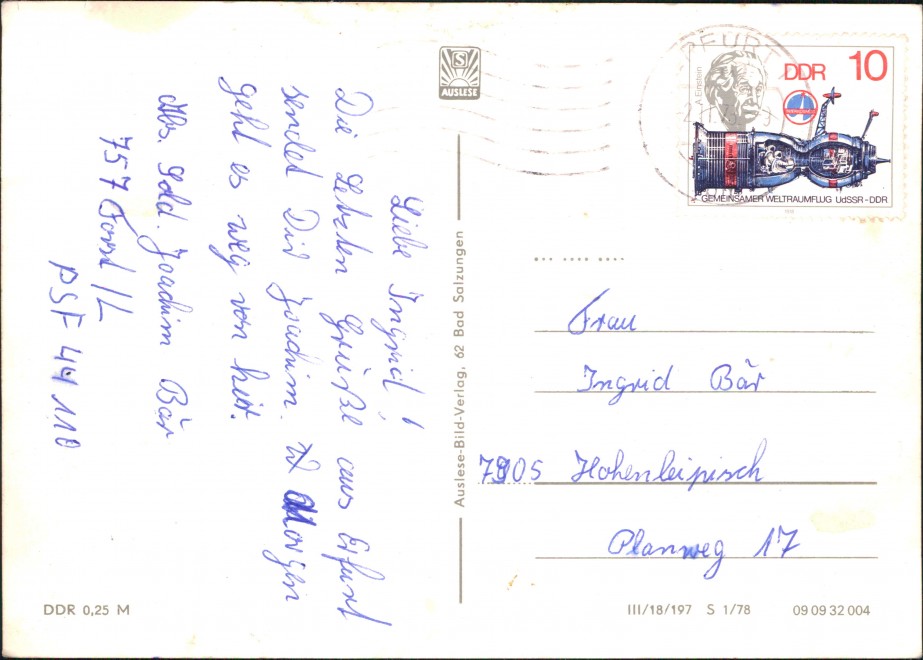 Liebe Ingrid!
Die Letzten Grüße aus Erfurt
sendet Dir Joachim. Morgen
geht es weg von hier.
Abs. Sold. Joachim Bär
757 Forst/L
PSF 44 110
S
AUSLESE
Auslese-Bild-Verlag, 62 Bad Salzungen
ERFURT
A. Einstein
DDR 10
GEMEINSAMER WELTRAUMFLUG UdSSR-DDR
Frau
Ingrid Bär
7905 Hohenleipisch
Planweg 17
DDR 0,25 M
III/18/197 S 1/78 09 09 32 004